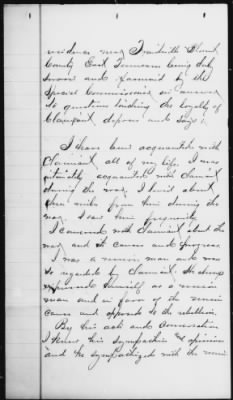 residence near Louisville Blount
County East Tennessee being duly
sworn and examined by the
Special Commissioner in answer
to questions touching the loyalty of
Claimant, deposes and says:
I have been acquainted with
claimant all of my life. I was
intimately acquainted with claimant
during the war. I lived about
three miles from him during the
war. I saw him frequently
I conversed with claimant about the
war and its causes and progress.
I was a union man and was
so regarded by claimant. He always
expressed himself as a union
man and in favor of the union
cause and opposed to the rebellion.
By his acts and conversation
I knew his sympathies and opinions
and he sympathized with the union